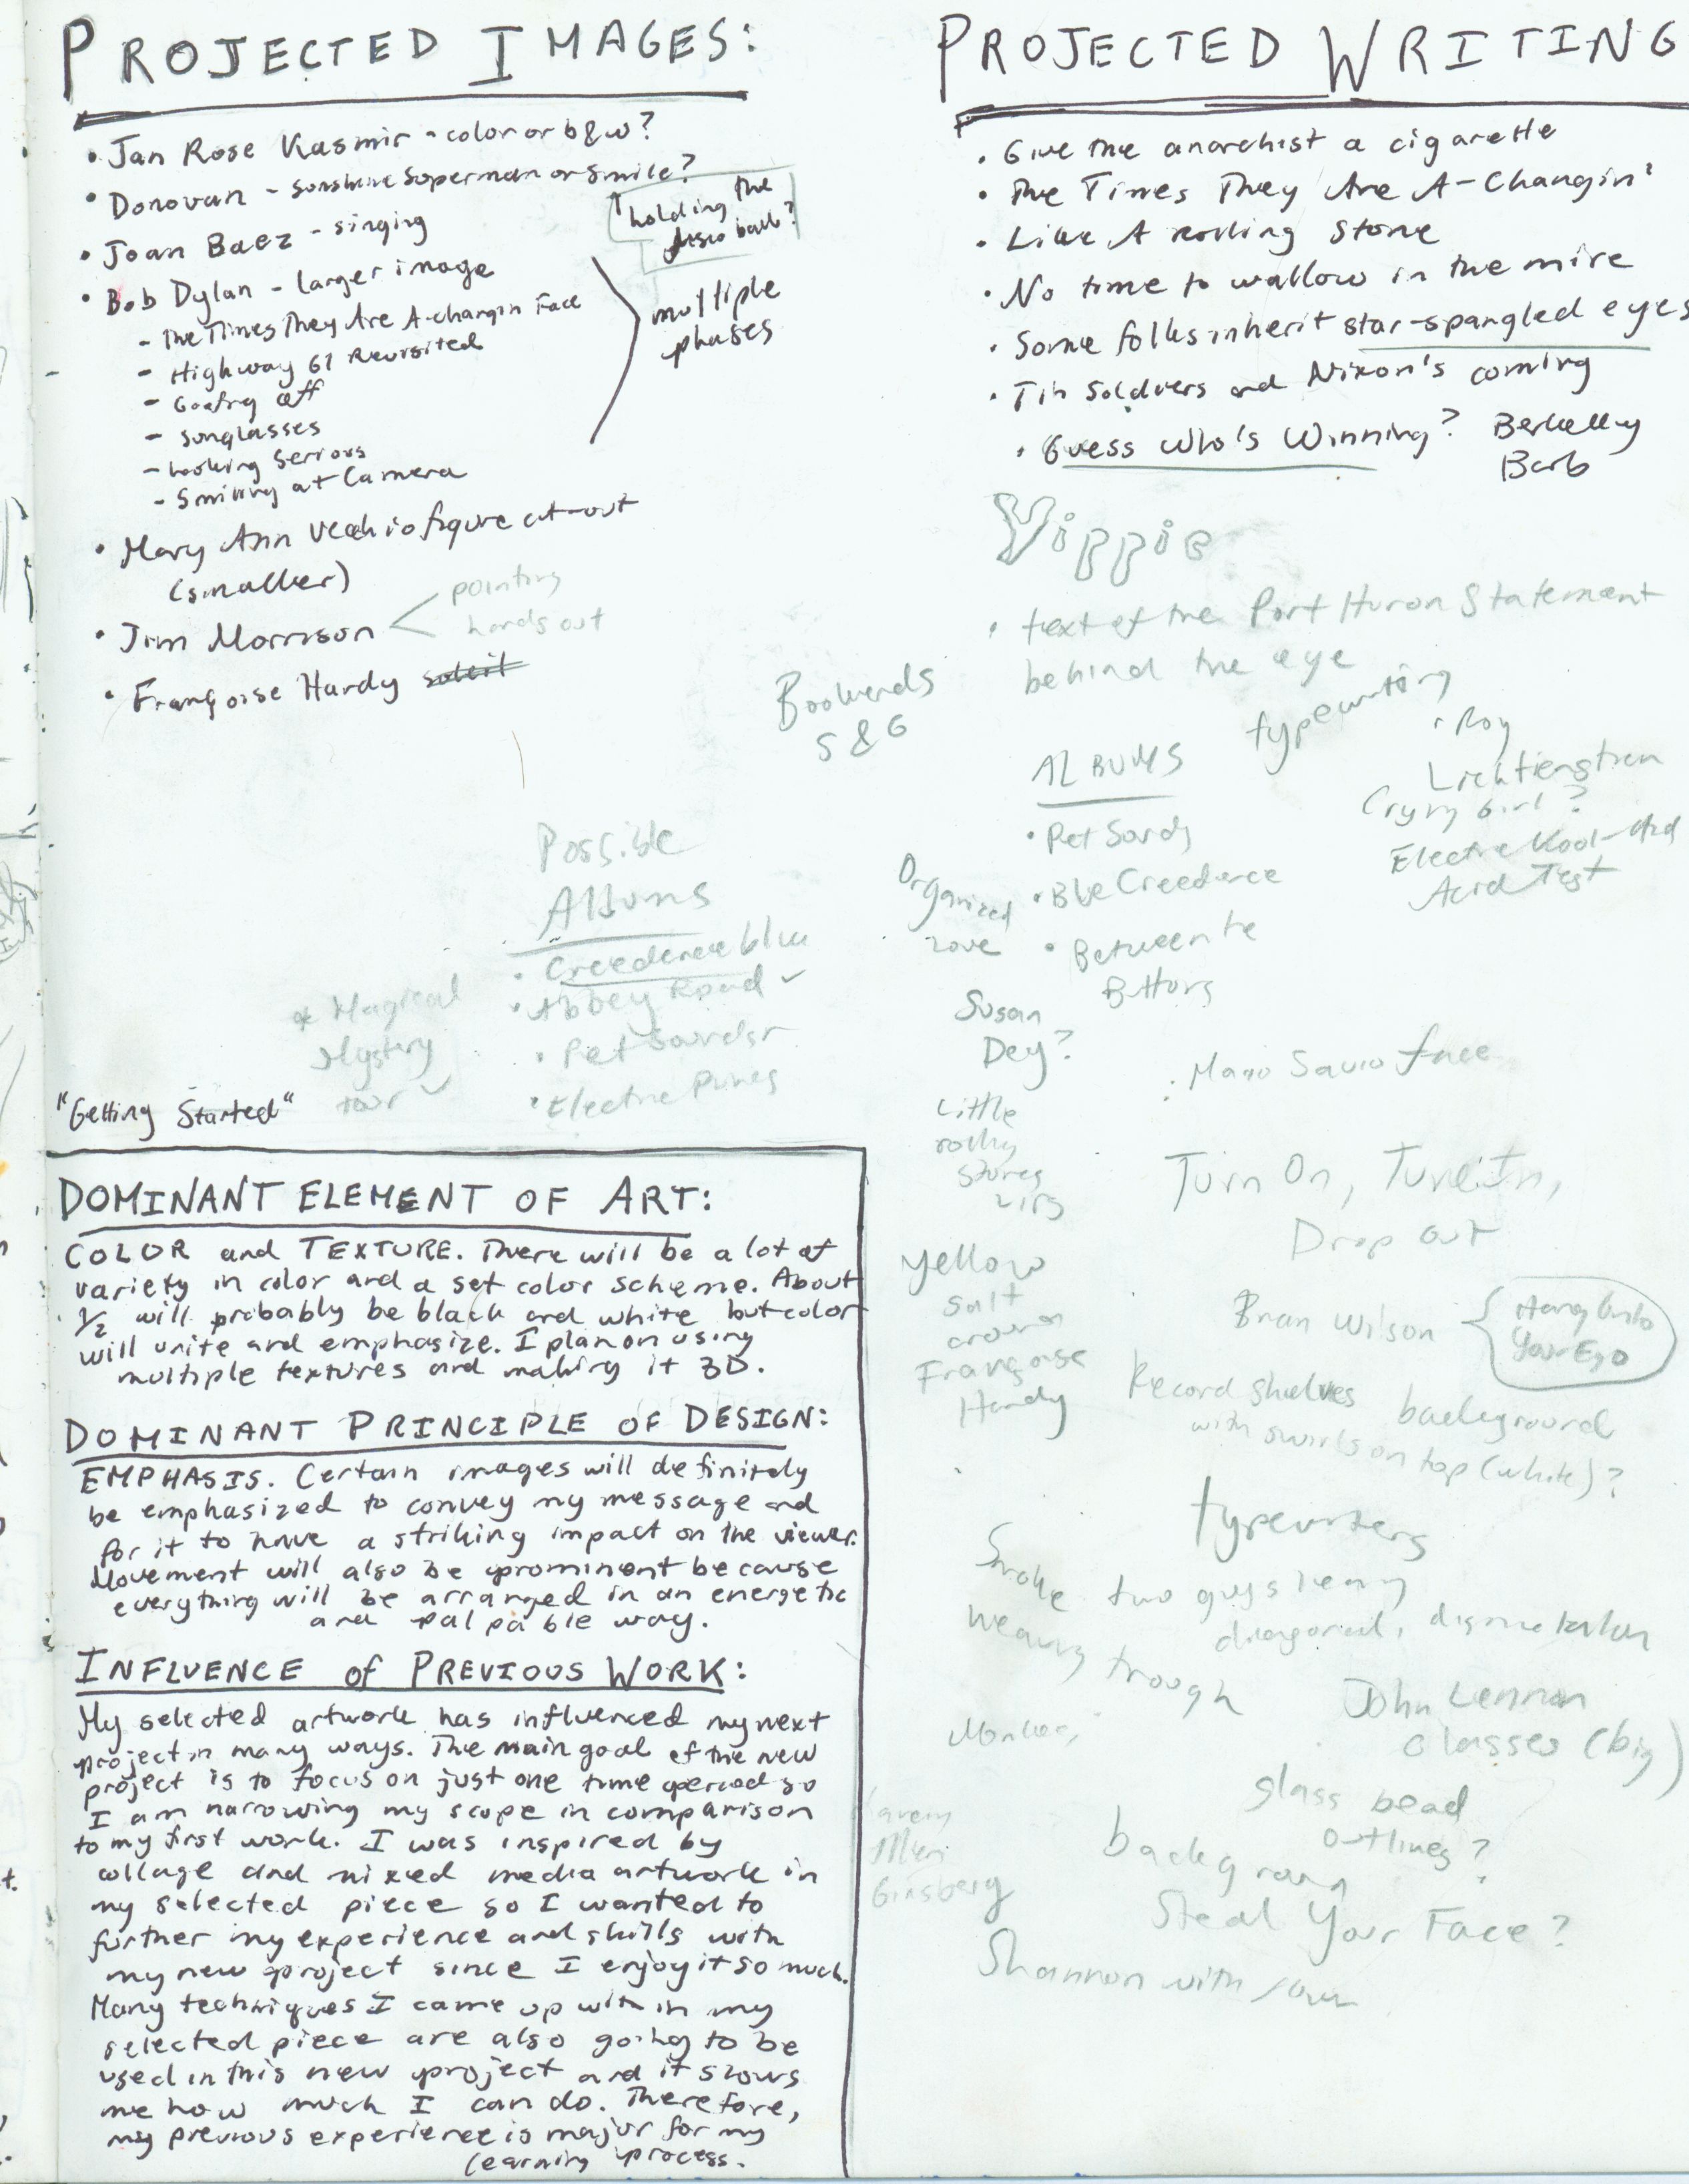 PROJECTED IMAGES:
• Jan Rose Kasmir - color or b&w?
• Donovan - sunshine superman or smile?
holding the
disco ball?
• Joan Baez - singing
• Bob Dylan - larger image
- The Times They Are A-changin Face
- Highway 61 Revisited
- Goofing off
- sunglasses
- Looking Serious
- Smiling at Camera
multiple
phases
• Mary Ann Vecchio figure cut-out
(smaller)
• Jim Morrison
pointing
hands out
• Françoise Hardy soleil
Possible
Albums
• Creedence blue
• Abbey Road ✓
• Pet Sounds
• Electric Prunes
* Magical
Mystery
tour ✓
"Getting Started"
DOMINANT ELEMENT OF ART:
COLOR and TEXTURE. There will be a lot of
variety in color and a set color scheme. About
1/2 will probably be black and white but color
will unite and emphasize. I plan on using
multiple textures and making it 3D.
DOMINANT PRINCIPLE OF DESIGN:
EMPHASIS. Certain images will definitely
be emphasized to convey my message and
for it to have a striking impact on the viewer.
Movement will also be prominent because
everything will be arranged in an energetic
and palpable way.
INFLUENCE of PREVIOUS WORK:
My selected artwork has influenced my next
project in many ways. The main goal of the new
project is to focus on just one time period so
I am narrowing my scope in comparison
to my first work. I was inspired by
collage and mixed media artwork in
my selected piece so I wanted to
further my experience and skills with
my new project since I enjoy it so much.
Many techniques I came up with in my
selected piece are also going to be
used in this new project and it shows
me how much I can do. Therefore,
my previous experience is major for my
learning process.
PROJECTED WRITING
• Give the anarchist a cigarette
• The Times They Are A-Changin'
• Like A rolling Stone
• No time to wallow in the mire
• Some folks inherit star-spangled eyes
• Tin Soldiers and Nixon's coming
• Guess Who's Winning? Berkelley
Barb
Yippie
• text of the Port Huron Statement
behind the eye
typewriting
Bookends
S & G
ALBUMS
• Pet Sounds
• Blue Creedence
• Between the
Buttons
• Roy
Lichtienstien
Crying Girl?
Electric Kool-Aid
Acid Test
Organized
Love
Susan
Dey?
• Mario Savio face
Little
rocky
stones
lips
Turn On, Tune In,
Drop out
Yellow
salt
around
Françoise
Hardy
Brian Wilson
Hang Onto
Your Ego
Record shelves background
with swirls on top (white)?
typewriters
Smoke
weaving trough
two guys
John Lennon
Glasses (big)
glass bead
outlines?
Ginsberg
Steal Your Face?
Shannon with